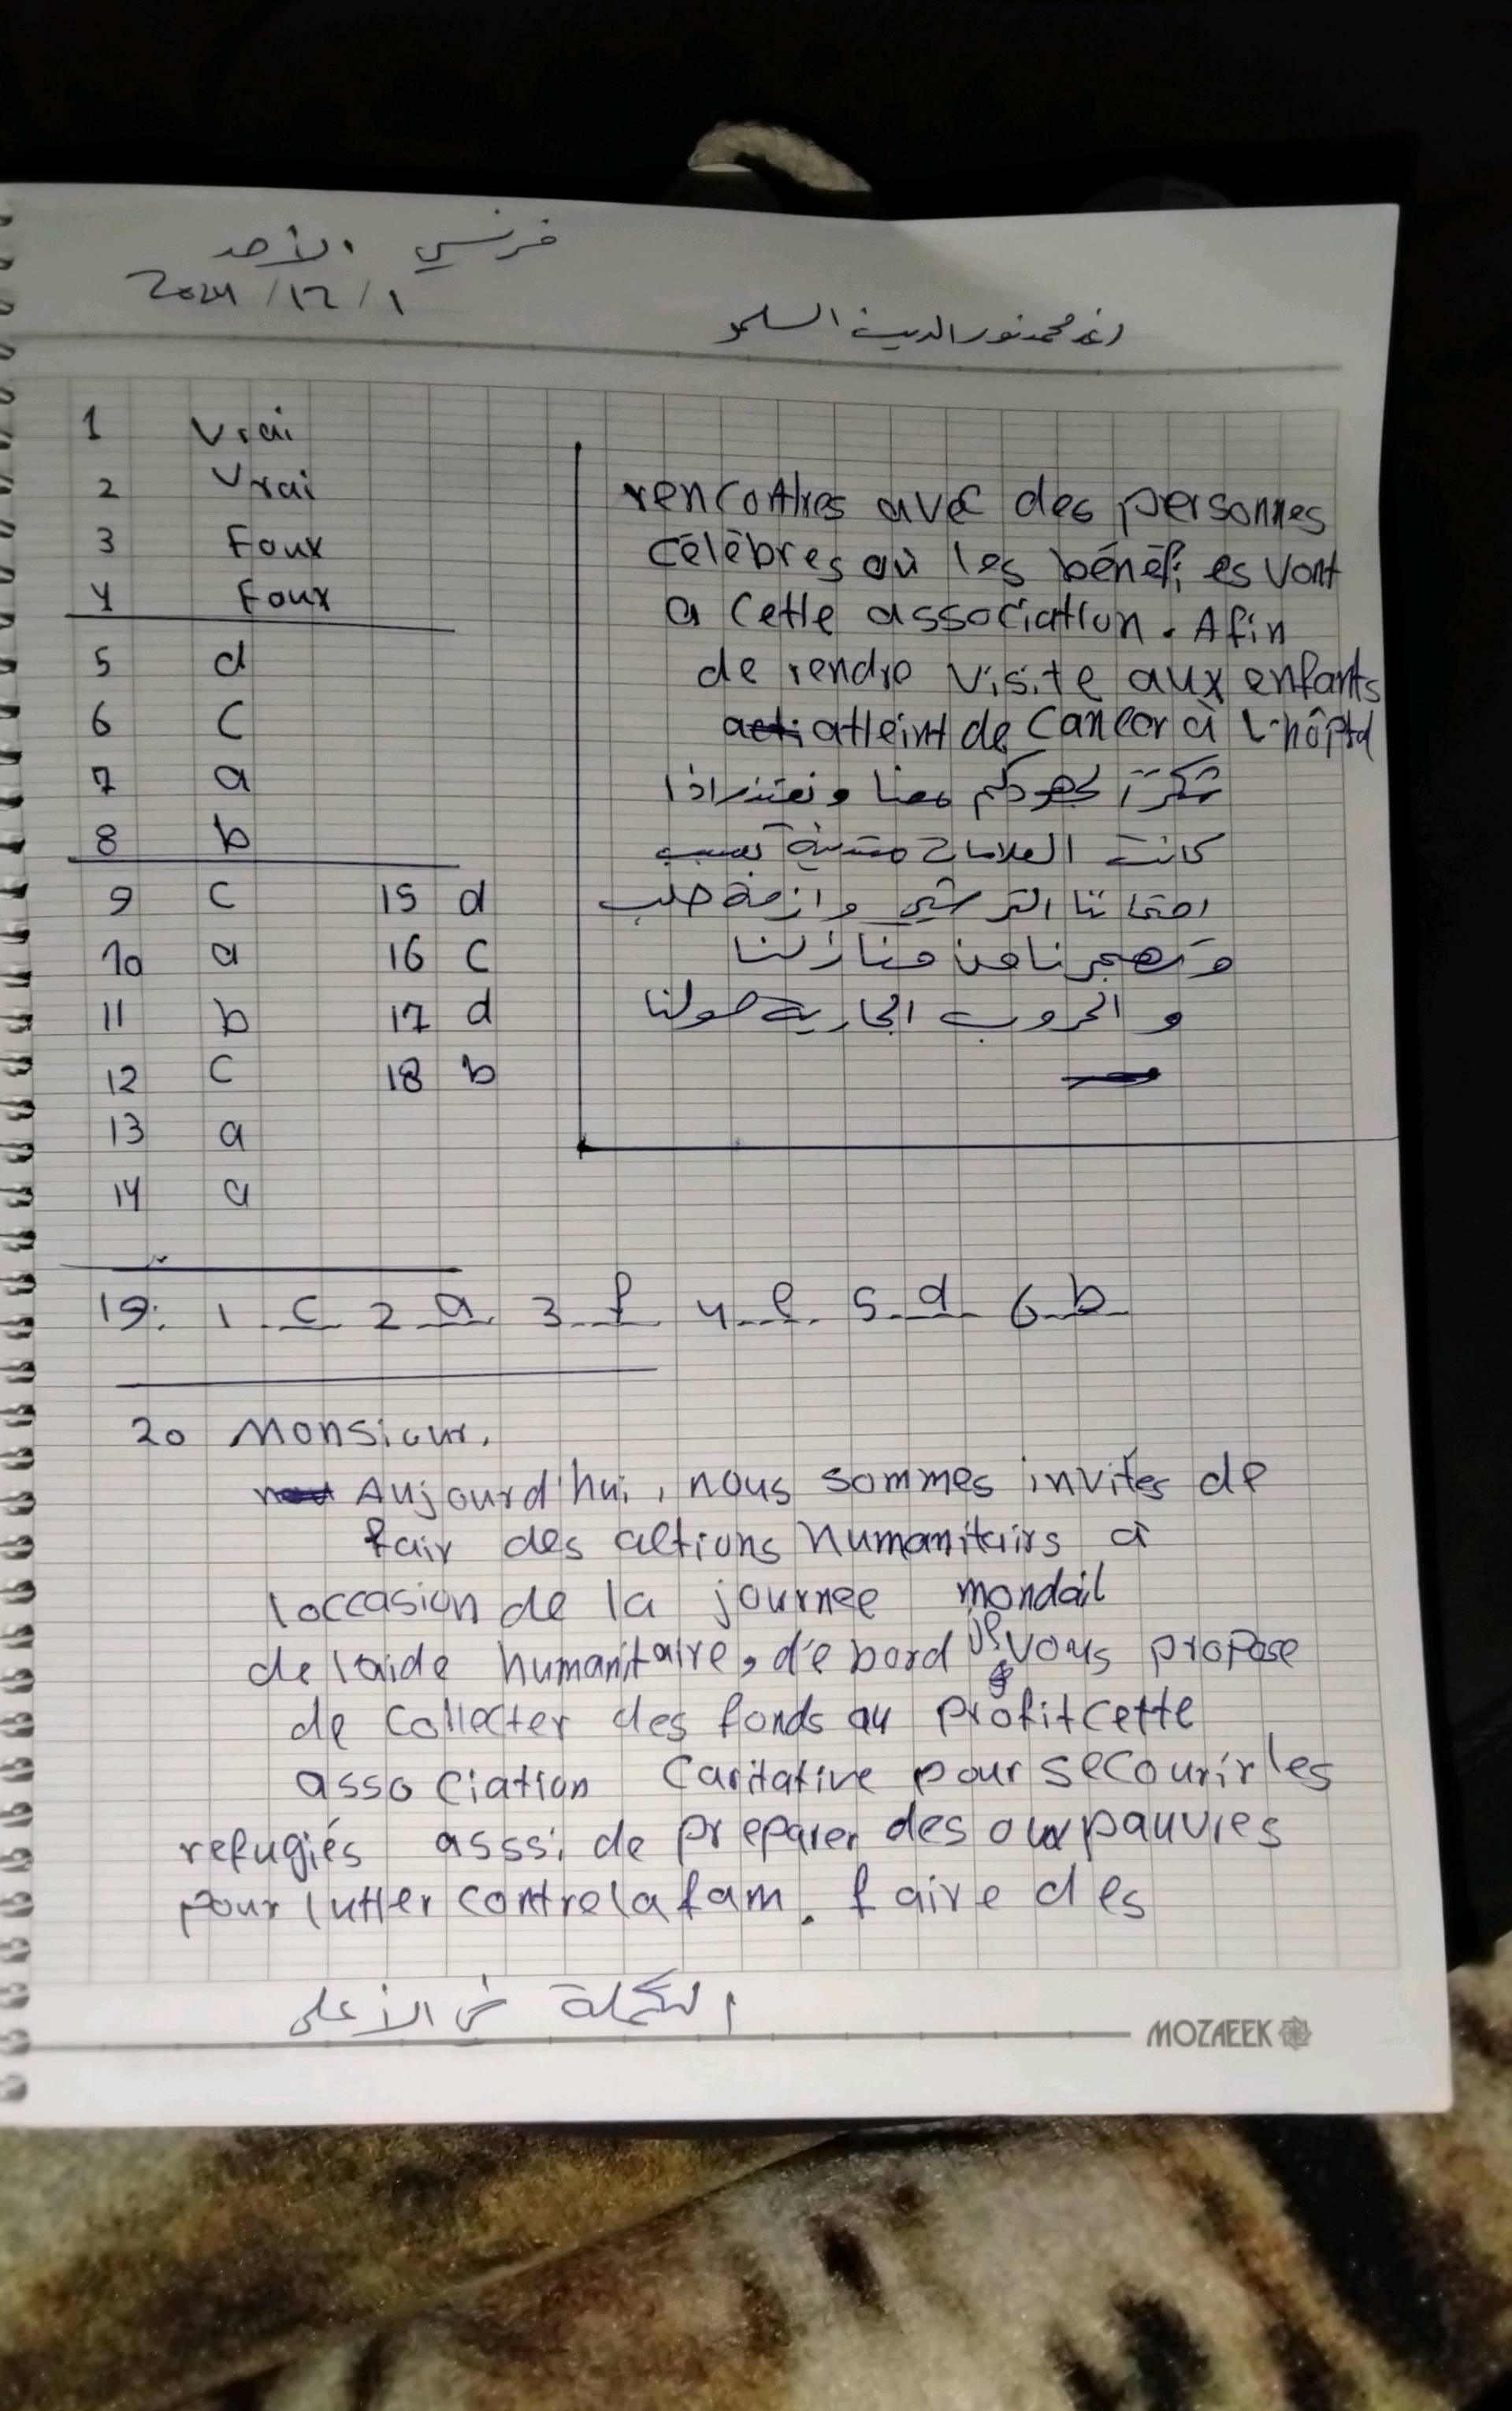 فرنسي الأحد
2024/12/1
رغد محمد نور الدين السلمو
1 Vrai
2 Vrai
3 Foux
4 Foux
5 d
6 C
7 a
8 b
9 C 15 d
10 a 16 C
11 b 17 d
12 C 18 b
13 a
14 a
rencontres avec des personnes
célèbres où les bénéfi es vont
a cette association. Afin
de rendre visite aux enfants
atteint de Cancer à L'hôpital
شكراً لجهودكم معنا ونعتذر اذا
كانت العلامات متدنية بسبب
امتحاننا الترشيحي وازمة حلب
وتهجرنا من منازلنا
والحروب الجارية حولنا
19: 1 c 2 a 3 f 4 e 5 d 6 b
20 Monsieur,
Aujourd'hui, nous sommes invités de
fair des altions humanitairs à
loccasion de la journee mondail
de laide humanitaire, d'e bord je vous propose
de collecter des fonds au profit cette
association Caritative pour secourir les
refugiés asssi de preparer des aux pauvres
pour lutter contre la fam. faire des
التكملة في الأعلى
MOZAEEK